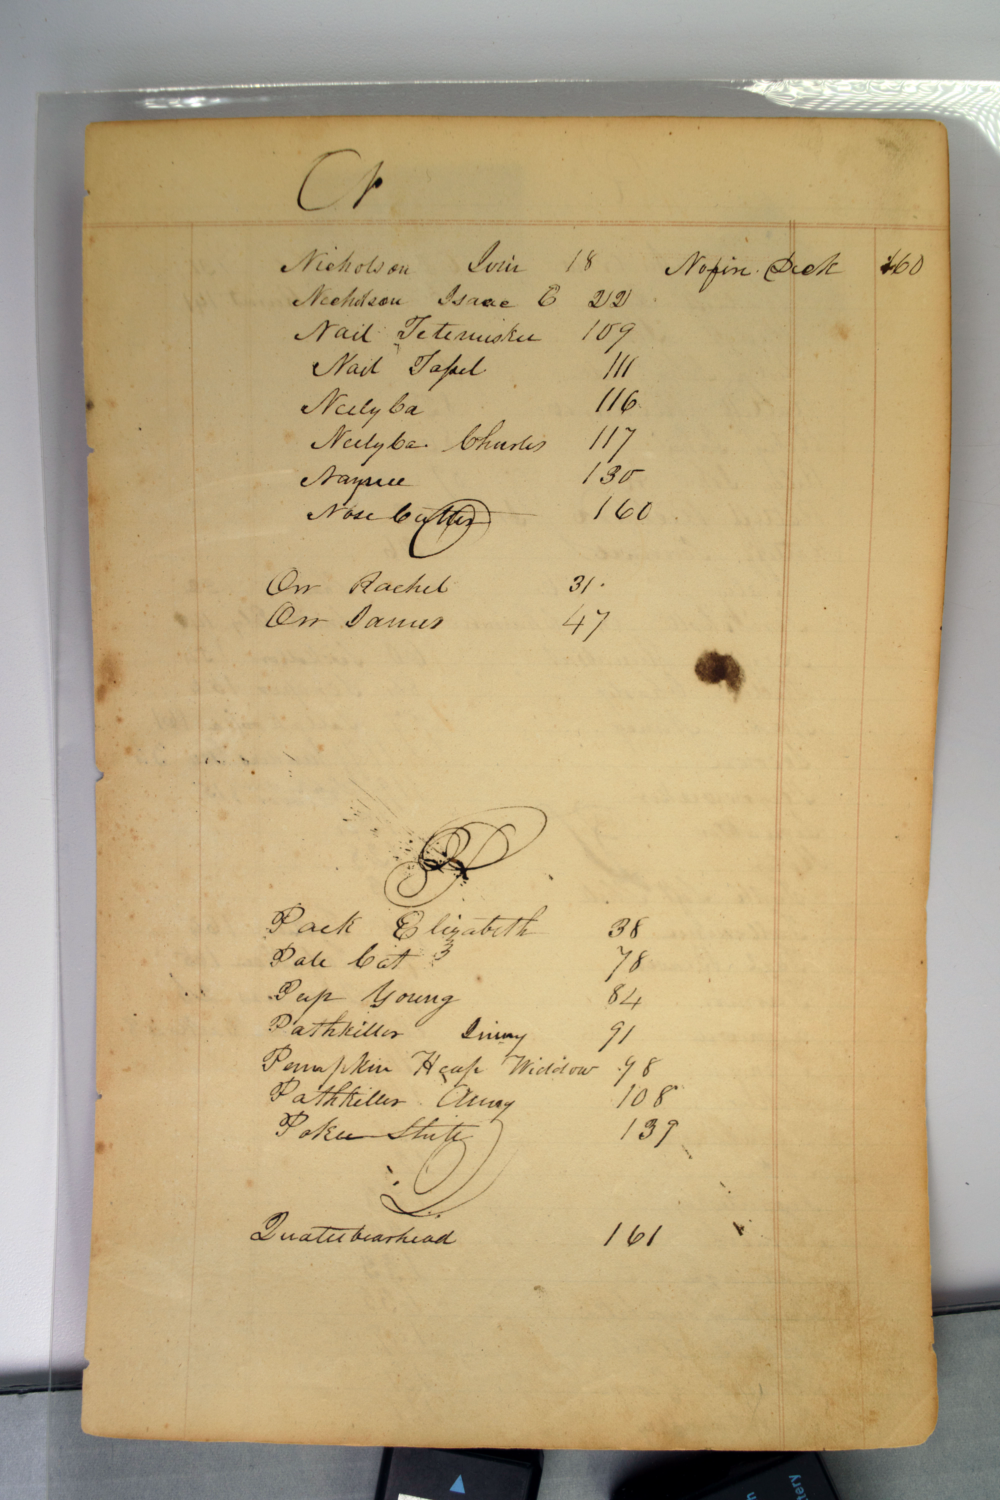 N
Nicholson 18 Nofire Dick 160
Nicholson Isaac C 22
Nail Teteniskee 109
Nail Tassel 111
NeelyCa 116
NeelyCa Charles 117
Naynee 130
Nose Cutter 160
O
Orr Rachel 31
Orr James 47
P
Pack Elizabeth 38
Pale Cat 78
Pup Young 84
Pathkiller Jinny 91
Pumpkin Heap Widdow 98
Pathkiller Anny 108
Pokee Shite 139
Q
Quateebearhead 161